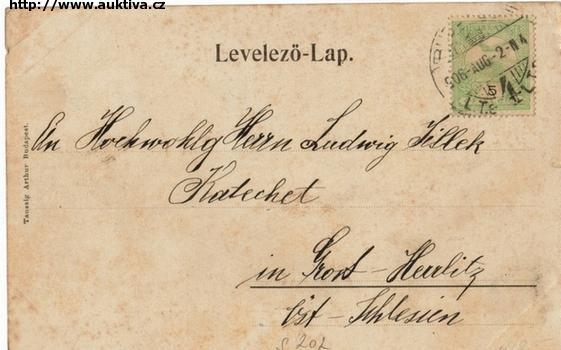 http://www.auktiva.cz
Levelező-Lap.
906 AUG -2 N4
5
An Hochwohlg Herrn Ludwig Jillek
Katechet
in Gross-Herrlitz
Öst-Schlesien
S 202
Taussig Arthur Budapest.